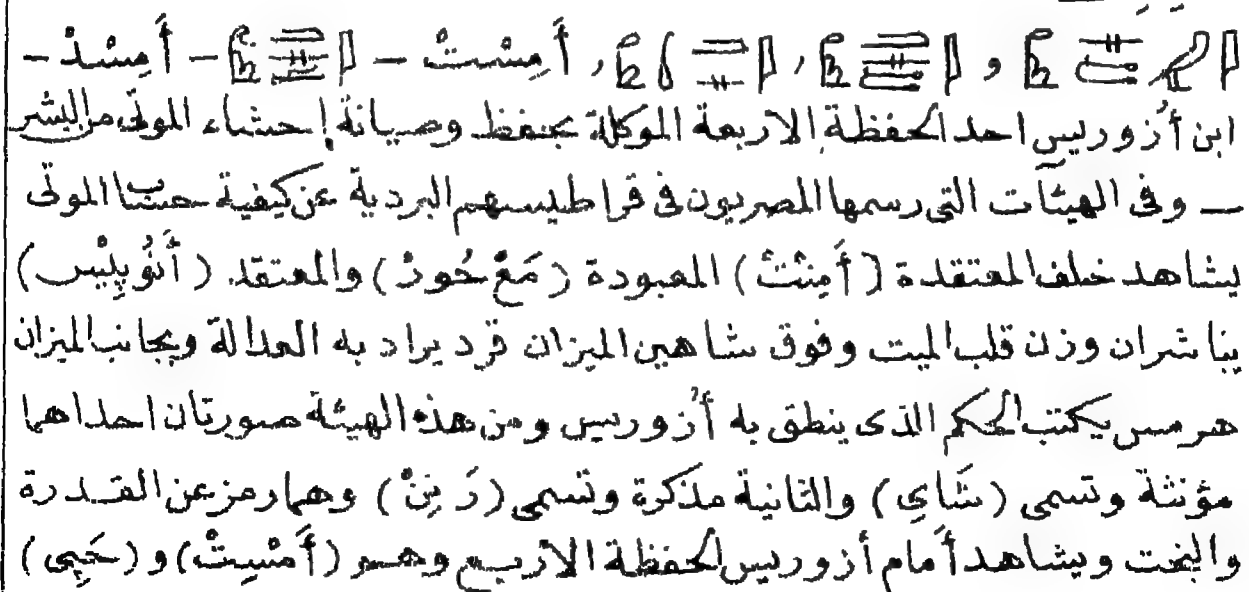 و ، ، أَمِسْتْ - - أَمِسْدْ -
ابن أُزوريس احد الحفظة الاربعة الموكلة بحفظ وصيانة إحشاء الموتى من البشر
— وفى الهيئآت التى رسمها المصريون فى قراطيسهم البردية عن كيفية حساب الموتى
يشاهد خلف المعتقدة (أَمِنْتْ) المعبودة (مَعْ حُورْ) والمعتقد (أَنُوبِيْس)
يباشران وزن قلب الميت وفوق شاهين الميزان قرد يراد به العدالة وبجانب الميزان
هرمس يكتب الحكم الذى ينطق به أُزوريس ومن هذه الهيئة صورتان احداهما
مؤنثة وتسمى (شَاىِ) والثانية مذكرة وتسمى (رَنِنْ) وهما رمز عن القدرة
والبخت ويشاهد أَمام أزوريس الحفظة الاربع وهم (أَمْسِتْ) و (حَپِى)